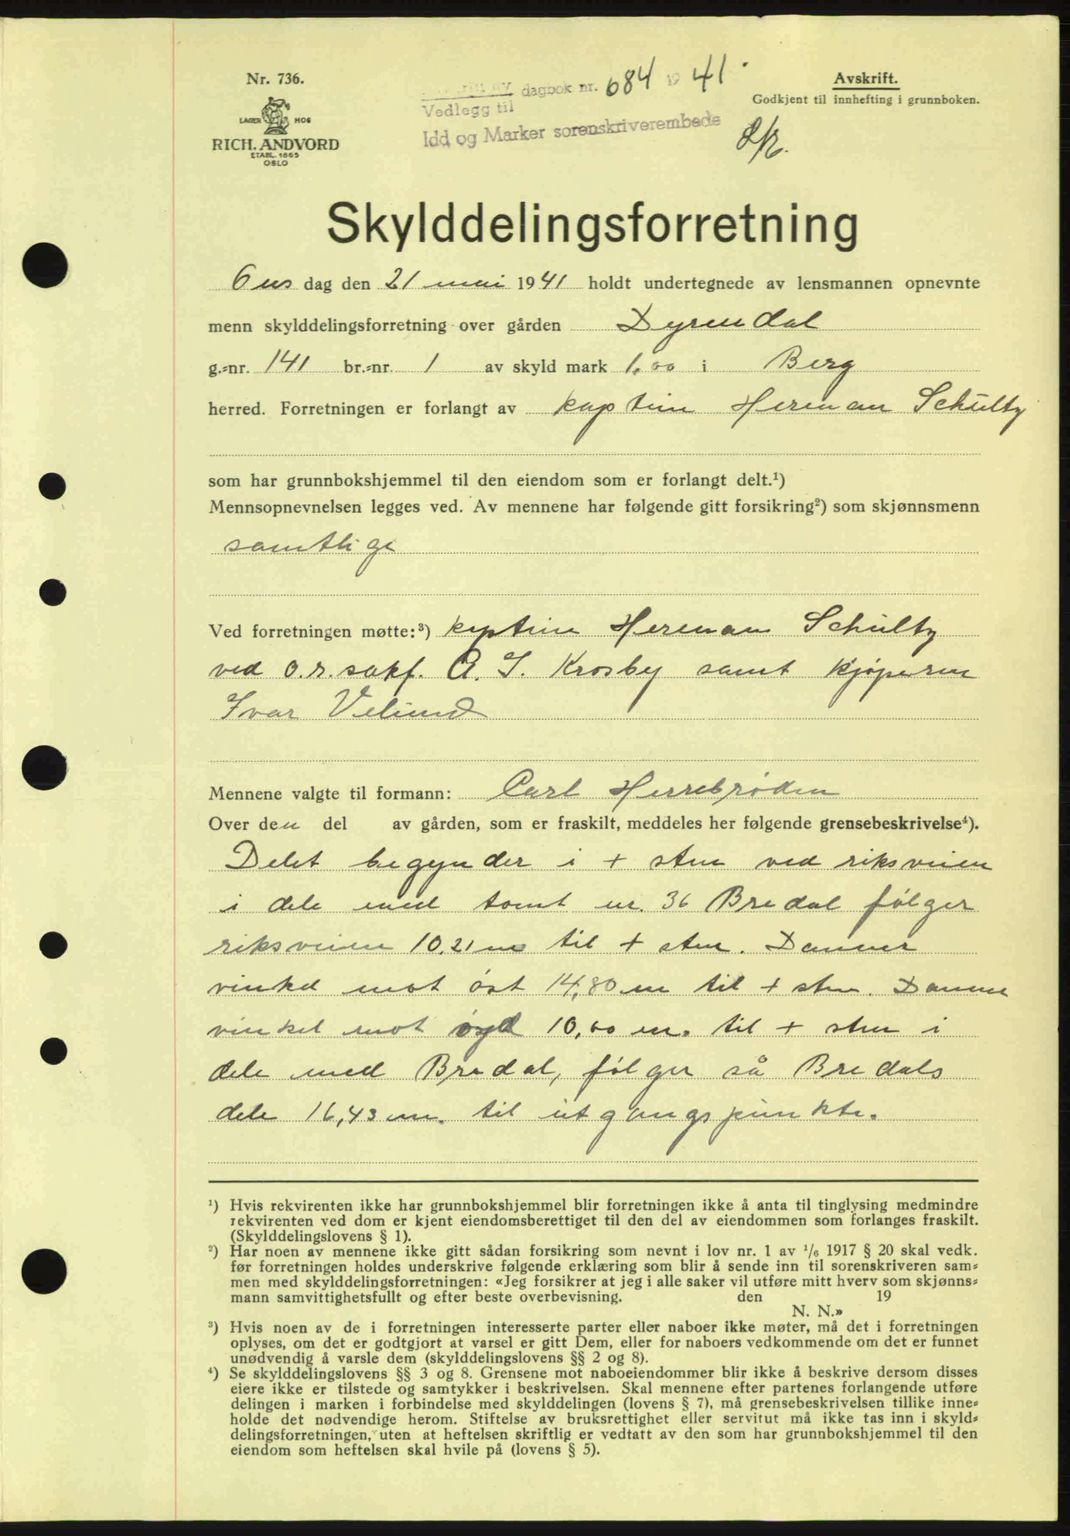 Nr. 736.
LAGER HOS
RICH. ANDVORD
ETABL. 1865
OSLO
dagbok nr. 684 1941.
Vedlegg til
Idd og Marker sorenskriverembede
Avskrift.
Godkjent til innhefting i grunnboken.
Skylddelingsforretning
Ons dag den 21 mai 1941 holdt undertegnede av lensmannen opnevnte
menn skylddelingsforretning over gården Dyrendal
g.=nr. 141 br.=nr. 1 av skyld mark 1,00 i Berg
herred. Forretningen er forlangt av kaptein Herman Schultz
som har grunnbokshjemmel til den eiendom som er forlangt delt.¹)
Mennsopnevnelsen legges ved. Av mennene har følgende gitt forsikring²) som skjønnsmenn
samtlige
Ved forretningen møtte:³) kaptein Herman Schultz
ved o.r.sakf. A. I. Krosby samt kjøperen
Ivar Velund
Mennene valgte til formann: Carl Herrebrøden
Over den del av gården, som er fraskilt, meddeles her følgende grensebeskrivelse⁴).
Delet begynder i + sten ved riksveien
i dele med tomt nr. 36 Bredal følger
riksveien 10,21 m til + sten. Danner
vinkel mot øst 14,80 m til + sten. Danner
vinkel mot syd 10,00 m. til + sten i
dele med Bredal, følger så Bredals
dele 16,43 m. til utgangspunkte.
¹) Hvis rekvirenten ikke har grunnbokshjemmel blir forretningen ikke å anta til tinglysing medmindre
rekvirenten ved dom er kjent eiendomsberettiget til den del av eiendommen som forlanges fraskilt.
(Skylddelingslovens § 1).
²) Har noen av mennene ikke gitt sådan forsikring som nevnt i lov nr. 1 av ¹/₆ 1917 § 20 skal vedk.
før forretningen holdes underskrive følgende erklæring som blir å sende inn til sorenskriveren sam=
men med skylddelingsforretningen: «Jeg forsikrer at jeg i alle saker vil utføre mitt hverv som skjønns=
mann samvittighetsfullt og efter beste overbevisning. den 19
N. N.»
³) Hvis noen av de i forretningen interesserte parter eller naboer ikke møter, må det i forretningen
oplyses, om det er godtgjort at varsel er gitt Dem, eller for naboers vedkommende om det er funnet
unødvendig å varsle dem (skylddelingslovens §§ 2 og 8).
⁴) Se skylddelingslovens §§ 3 og 8. Grensene mot naboeiendommer blir ikke å beskrive dersom disses
eiere ikke er tilstede og samtykker i beskrivelsen. Skal mennene efter partenes forlangende utføre
delingen i marken i forbindelse med skylddelingen (lovens § 7), må grensebeskrivelsen tillike inne=
holde det nødvendige herom. Stiftelse av bruksrettighet eller servitut må ikke tas inn i skyld=
delingsforretningen, uten at heftelsen skriftlig er vedtatt av den som har grunnbokshjemmel til den
eiendom som heftelsen skal hvile på (lovens § 5).